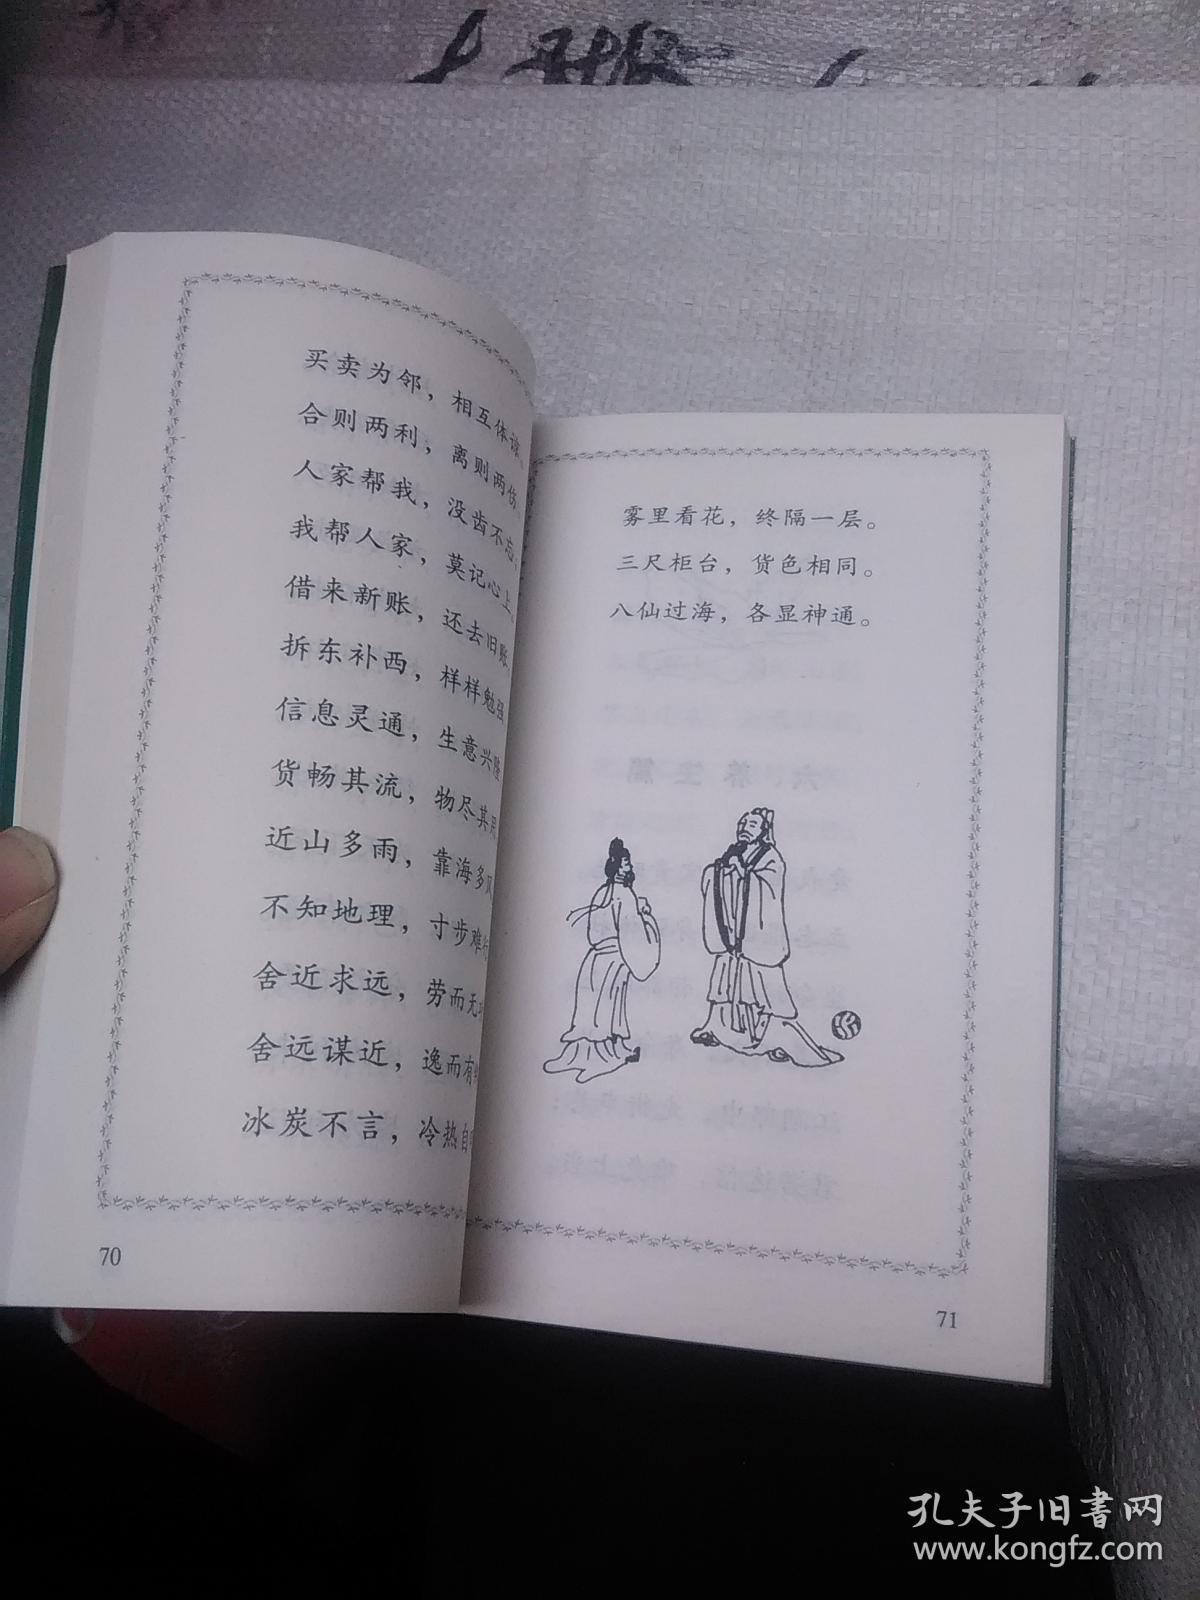 买卖为邻，相互体谅。
合则两利，离则两伤
人家帮我，没齿不忘；
我帮人家，莫记心上。
借来新账，还去旧账
拆东补西，样样勉强
信息灵通，生意兴隆
货畅其流，物尽其用
近山多雨，靠海多风
不知地理，寸步难行
舍近求远，劳而无功
舍远谋近，逸而有
冰炭不言，冷热自
70
雾里看花，终隔一层。
三尺柜台，货色相同。
八仙过海，各显神通。
71
孔夫子旧书网
www.kongfz.com